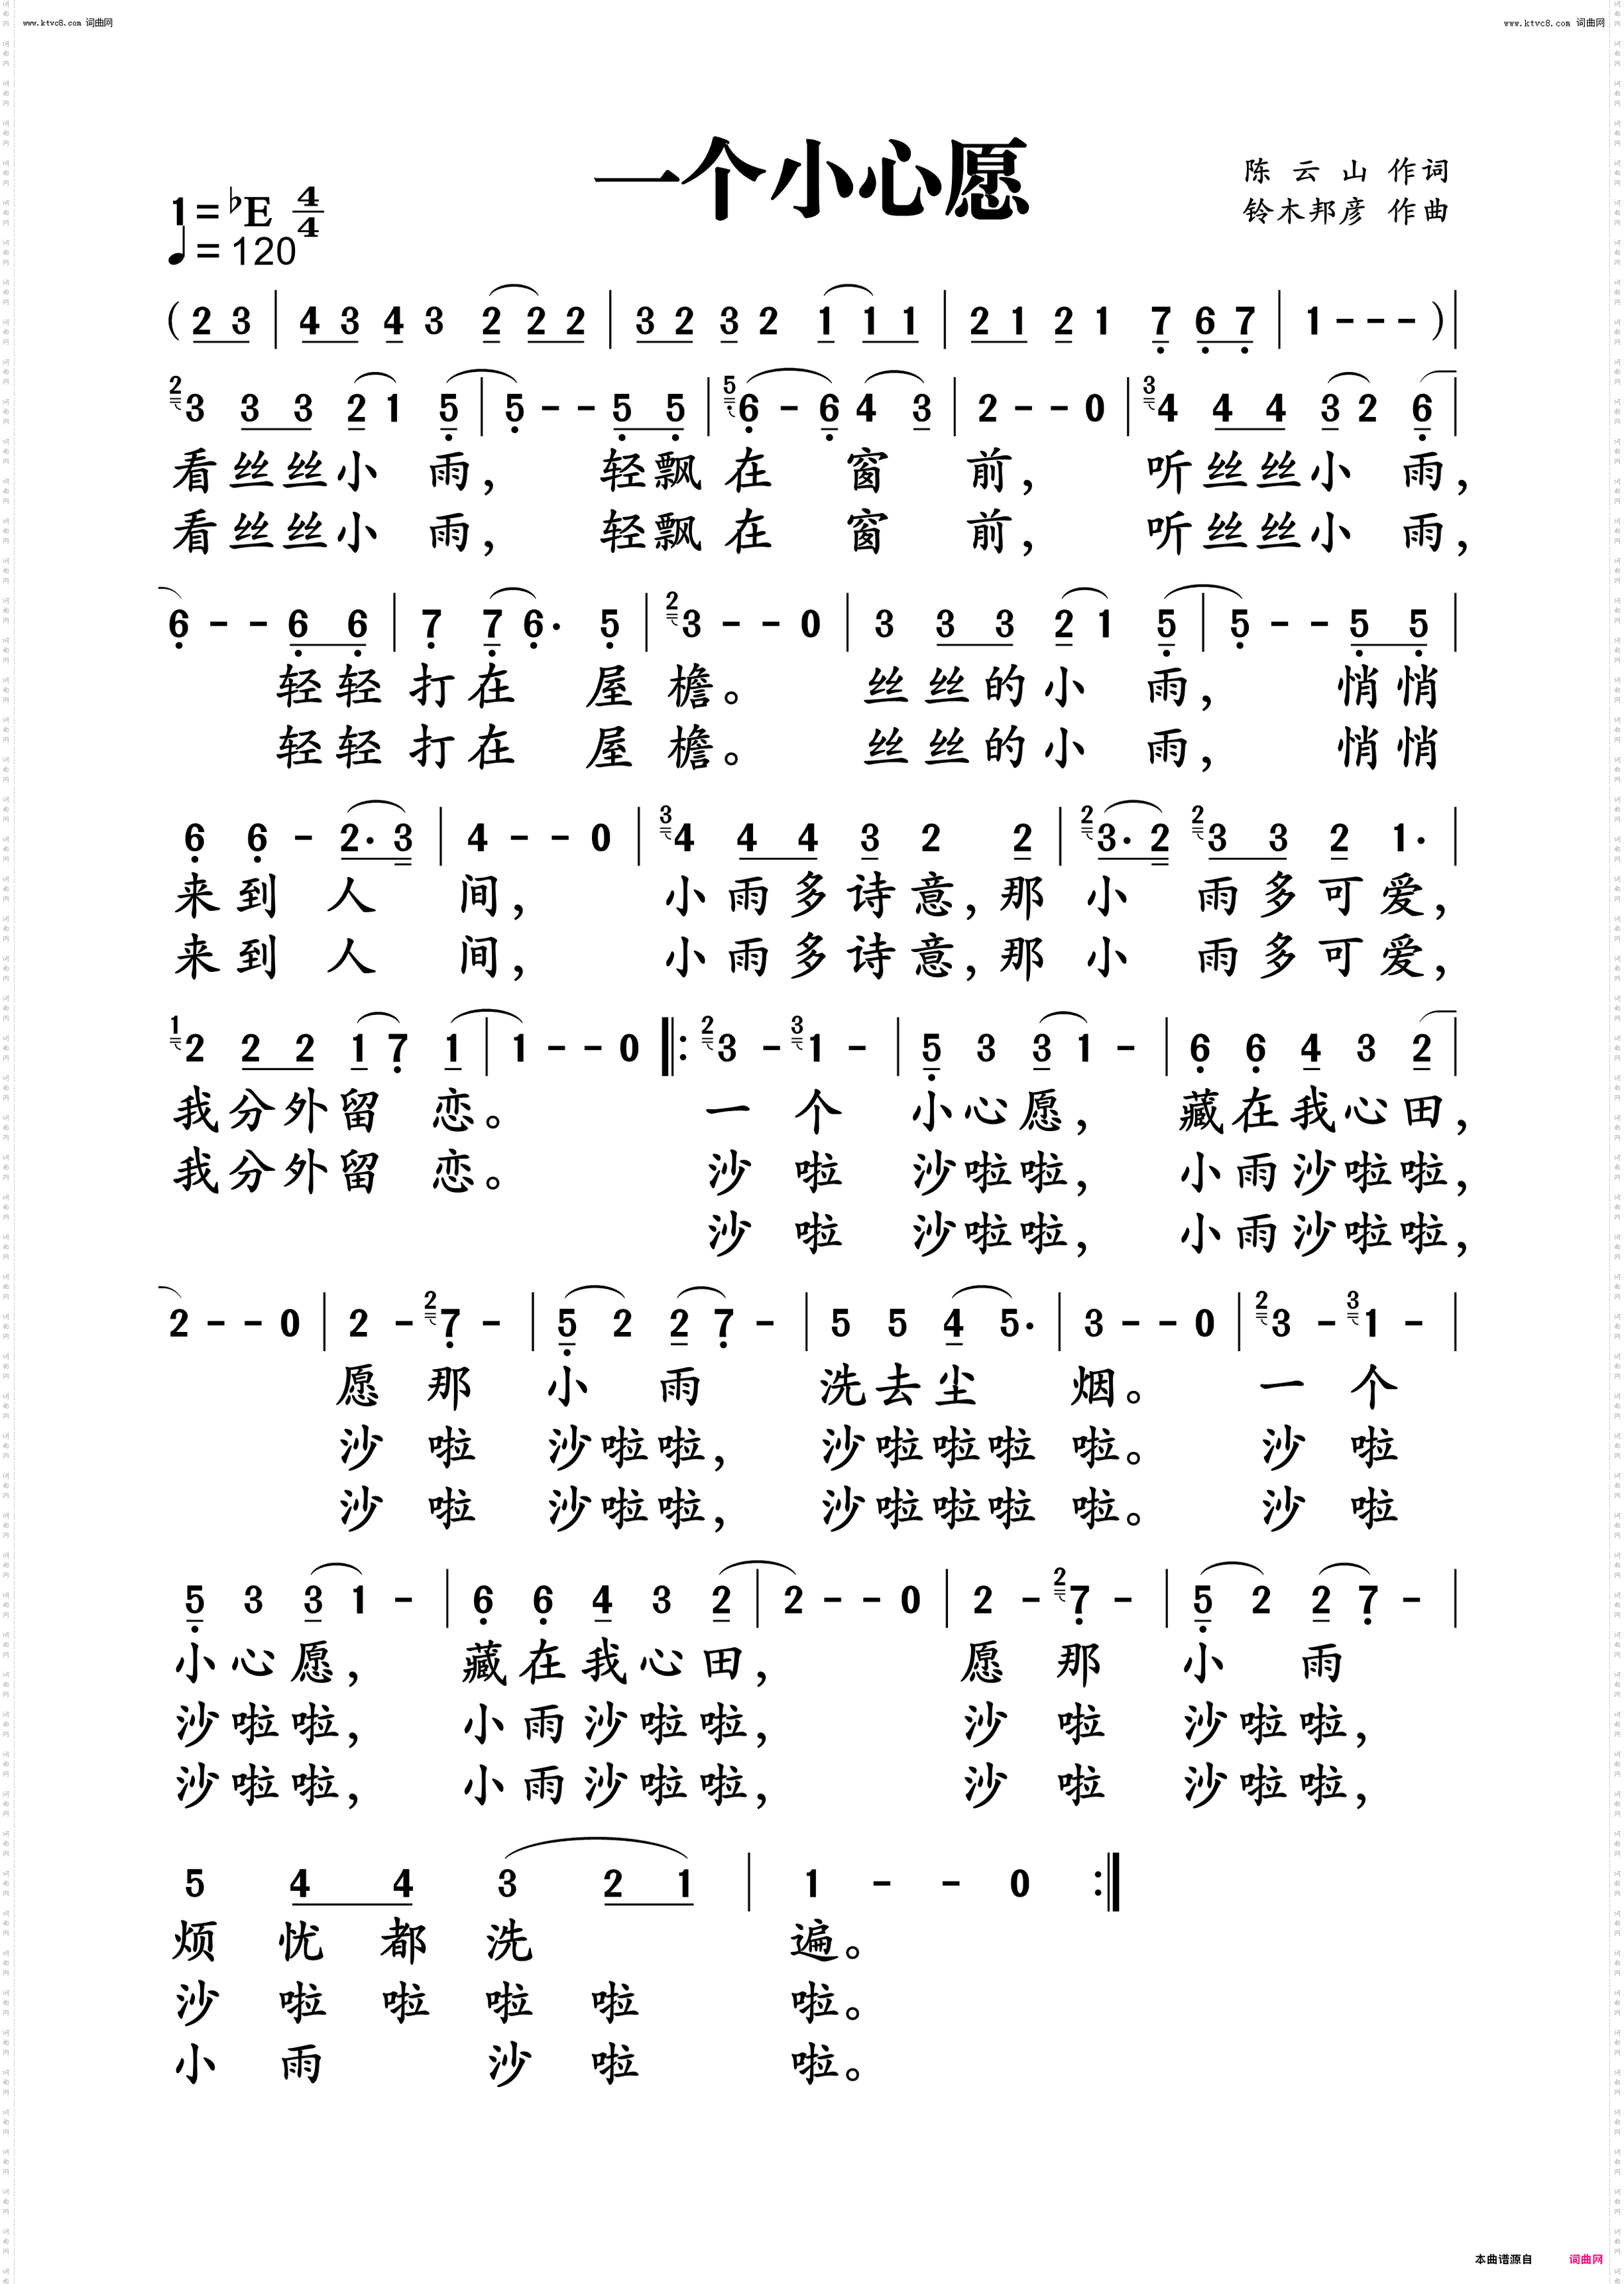 www.ktvc8.com 词曲网
www.ktvc8.com 词曲网
一个小心愿
陈云山 作词
铃木邦彦 作曲
1=♭E 4/4
♩=120
(2 3 | 4 3 4 3 2 2 2 | 3 2 3 2 1 1 1 | 2 1 2 1 7 6 7 | 1 - - - )|
2 3 3 3 2 1 5 | 5 - - 5 5 | 5 6 - 6 4 3 | 2 - - 0 | 3 4 4 4 3 2 6 |
看丝丝小雨， 轻飘在窗前， 听丝丝小雨，
看丝丝小雨， 轻飘在窗前， 听丝丝小雨，
6 - - 6 6 | 7 7 6· 5 | 2 3 - - 0 | 3 3 3 2 1 5 | 5 - - 5 5 |
轻轻打在屋檐。 丝丝的小雨， 悄悄
轻轻打在屋檐。 丝丝的小雨， 悄悄
6 6 - 2· 3 | 4 - - 0 | 3 4 4 4 3 2 2 | 2 3· 2 2 3 3 2 1· |
来到人间， 小雨多诗意，那小雨多可爱，
来到人间， 小雨多诗意，那小雨多可爱，
1 2 2 2 1 7 1 | 1 - - 0 ‖: 2 3 - 3 1 - | 5 3 3 1 - | 6 6 4 3 2 |
我分外留恋。 一个小心愿， 藏在我心田，
我分外留恋。 沙啦沙啦啦， 小雨沙啦啦，
沙啦沙啦啦， 小雨沙啦啦，
2 - - 0 | 2 - 2 7 - | 5 2 2 7 - | 5 5 4 5· | 3 - - 0 | 2 3 - 3 1 - |
愿那小雨 洗去尘烟。 一个
沙啦沙啦啦， 沙啦啦啦啦。 沙啦
沙啦沙啦啦， 沙啦啦啦啦。 沙啦
5 3 3 1 - | 6 6 4 3 2 | 2 - - 0 | 2 - 2 7 - | 5 2 2 7 - |
小心愿， 藏在我心田， 愿那小雨
沙啦啦， 小雨沙啦啦， 沙啦沙啦啦，
沙啦啦， 小雨沙啦啦， 沙啦沙啦啦，
5 4 4 3 2 1 | 1 - - 0 :‖
烦忧都洗遍。
沙啦啦啦啦啦。
小雨沙啦啦。
本曲谱源自 词曲网